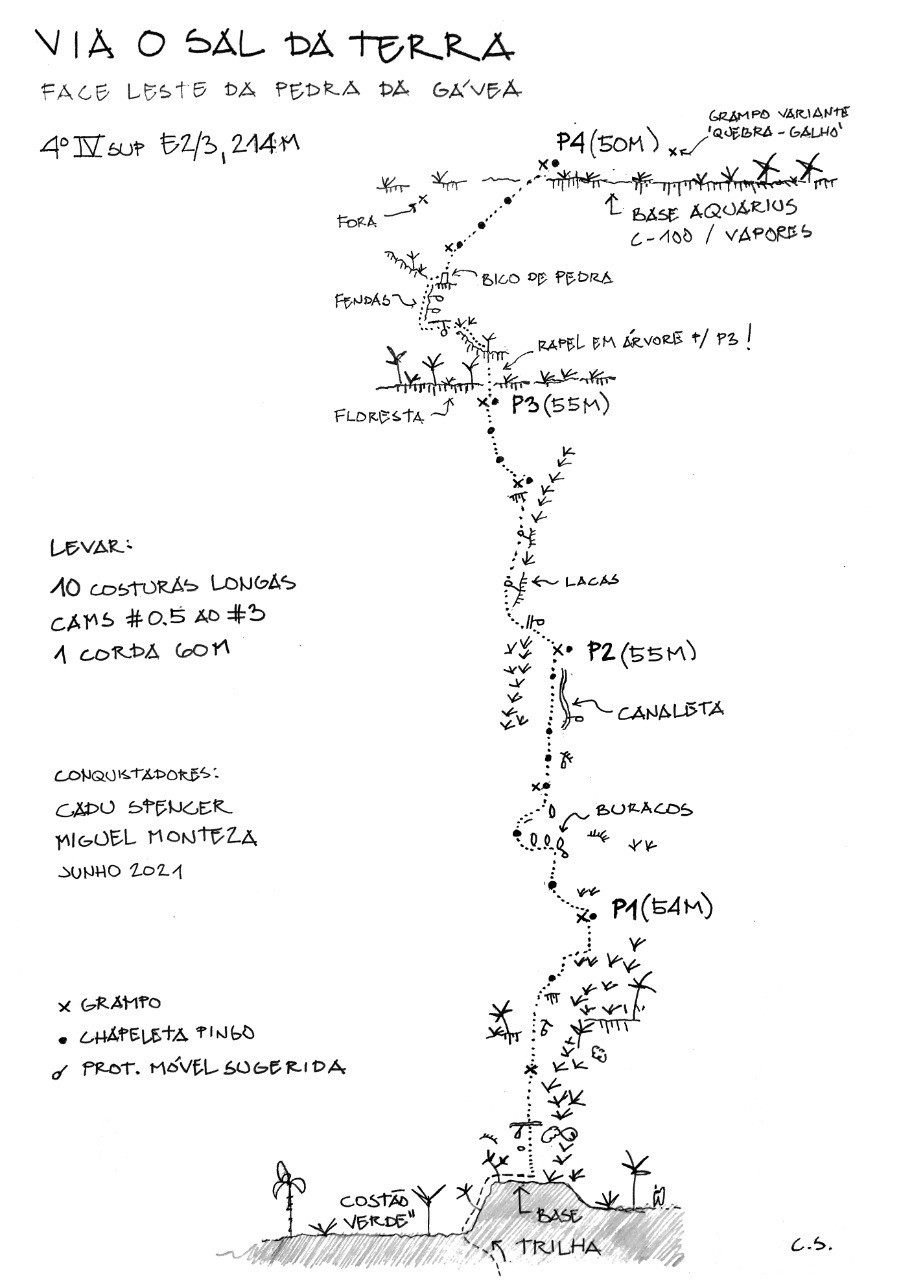 VIA O SAL DA TERRA
FACE LESTE DA PEDRA DA GÁVEA
4º IV SUP E2/3, 214M
GRAMPO VARIANTE
'QUEBRA-GALHO'
P4 (50M)
FORA
BASE AQUARIUS
C-100 / VAPORES
BICO DE PEDRA
FENDAS
RAPEL EM ÁRVORE +/ P3!
FLORESTA
P3 (55M)
LEVAR:
10 COSTURAS LONGAS
CAMS #0.5 AO #3
1 CORDA 60M
LACAS
P2 (55M)
CANALETA
CONQUISTADORES:
CADU SPENCER
MIGUEL MONTEZA
JUNHO 2021
BURACOS
P1 (54M)
x GRAMPO
• CHAPELETA PINGO
PROT. MÓVEL SUGERIDA
COSTÃO
VERDE"
BASE
TRILHA
C.S.